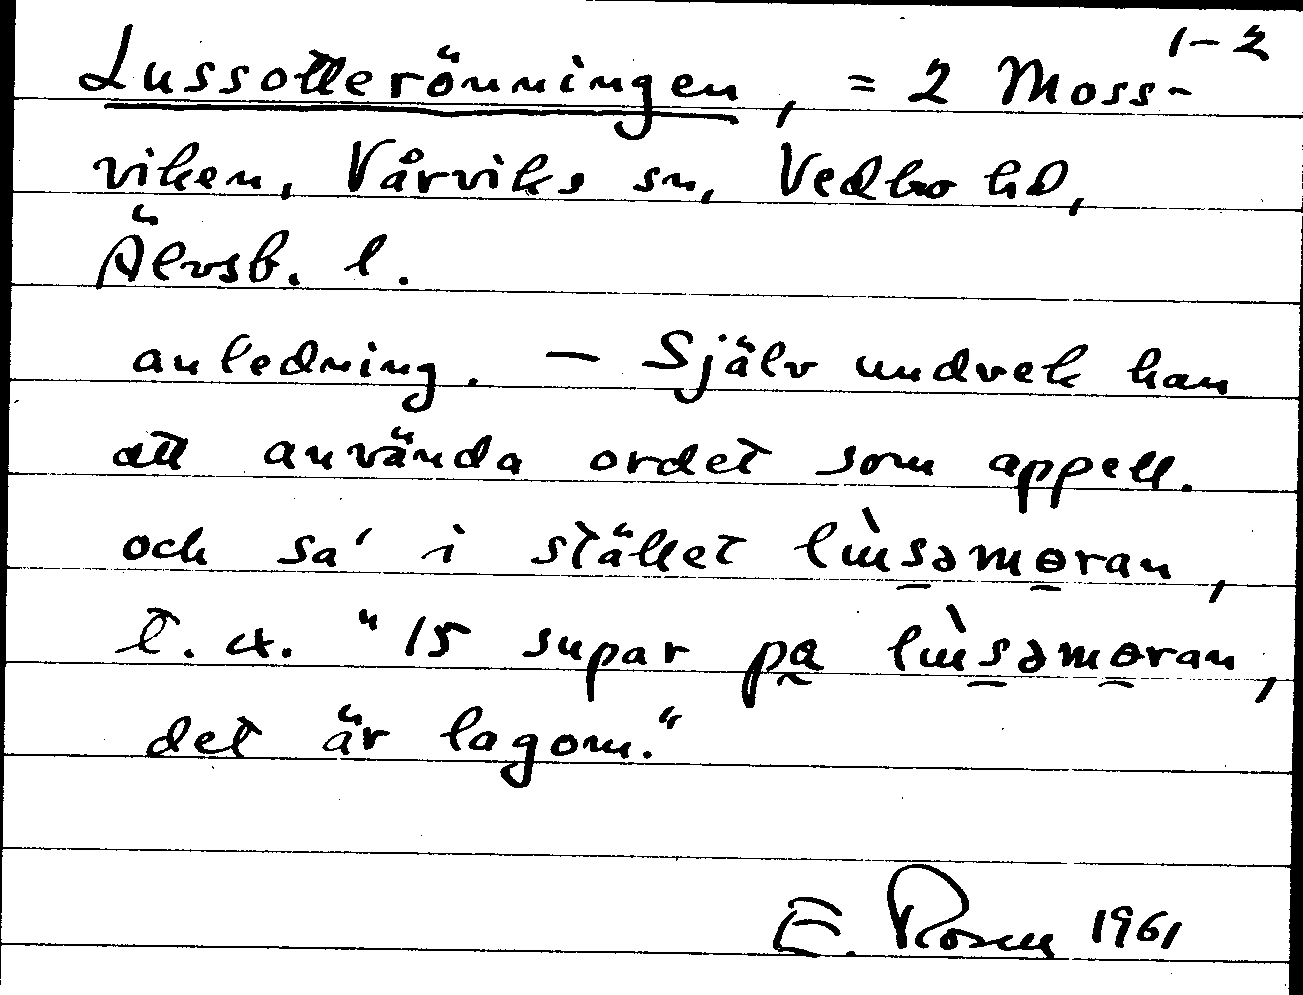 1-2
Lussotterönningen, = 2 Moss-
viken, Vårviks sn, Vedbo hd,
Älvsb. l.
anledning. — Själv undvek han
att använda ordet som appell.
och sa' i stället lùsəmɵran,
t.ex. "15 supar pa lùsəmɵran,
det är lagom."
E. Rosen 1961